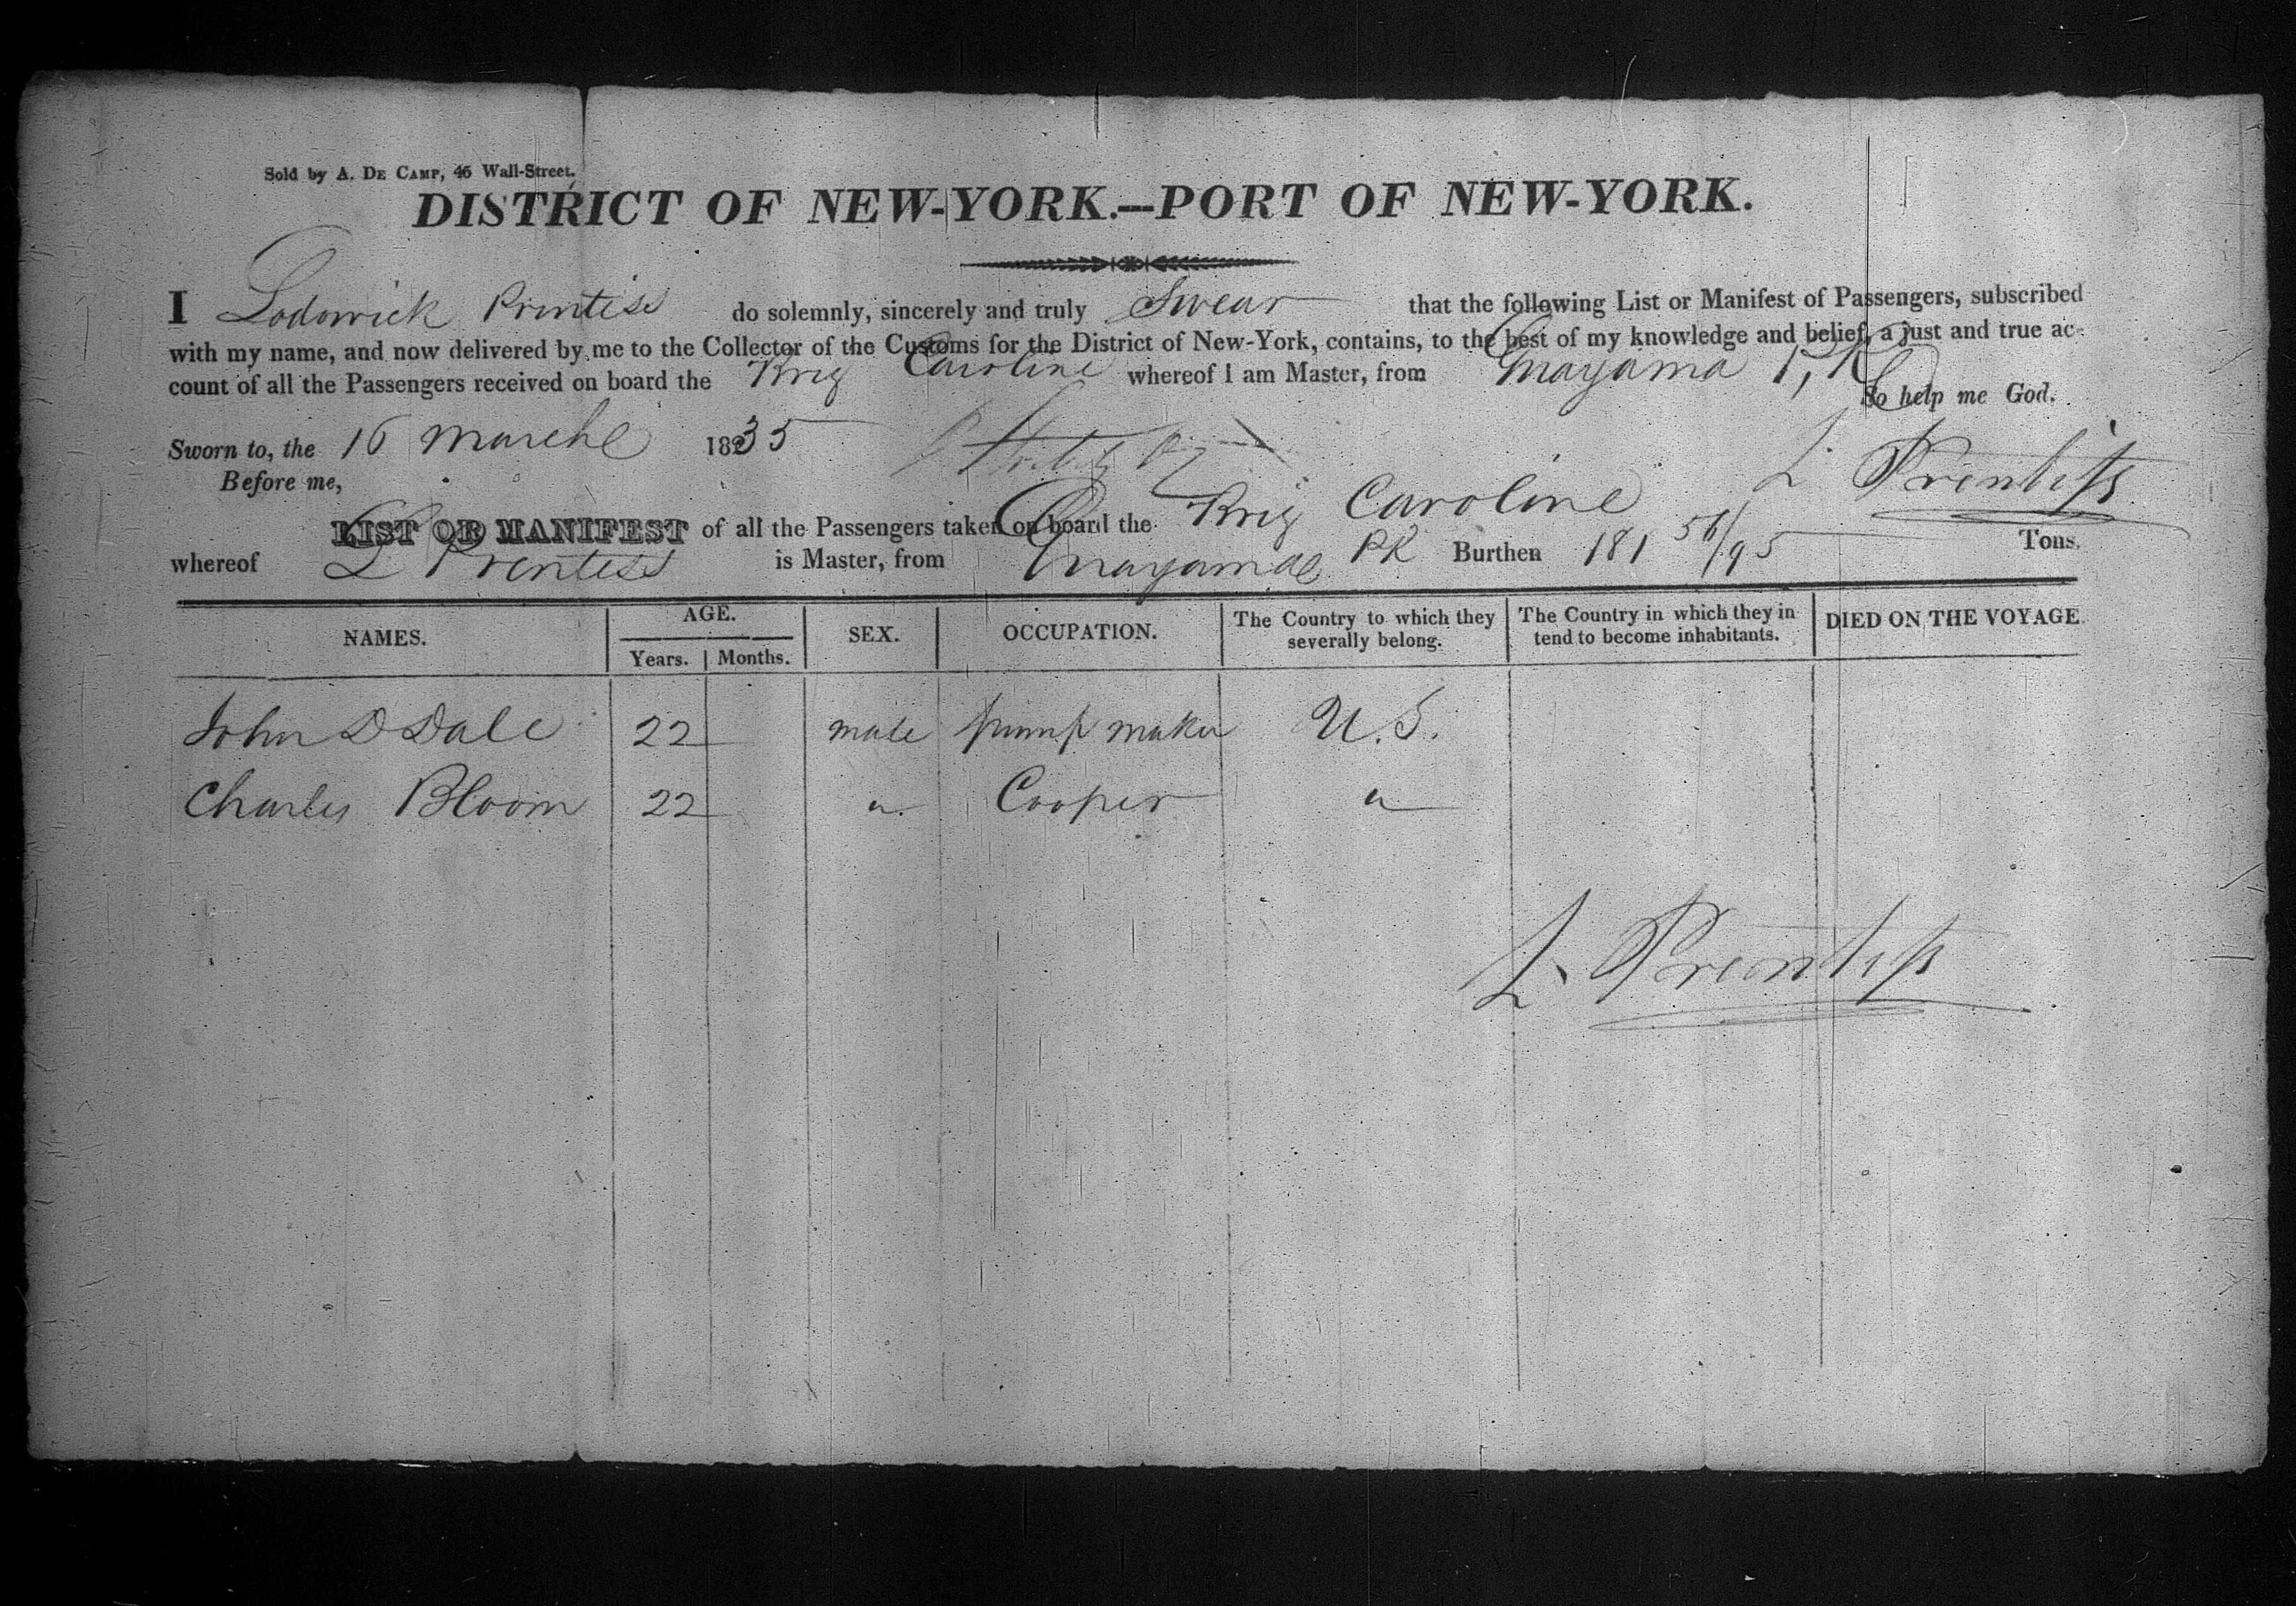 Sold by A. De Camp, 46 Wall-Street.
DISTRICT OF NEW-YORK.—PORT OF NEW-YORK.
I Lodowick Prentiss do solemnly, sincerely and truly Swear that the following List or Manifest of Passengers, subscribed
with my name, and now delivered by me to the Collector of the Customs for the District of New-York, contains, to the best of my knowledge and belief, a just and true ac-
count of all the Passengers received on board the Brig Caroline whereof I am Master, from Guayama P, R
So help me God.
Sworn to, the 16 March 1835
L Prentiss
Before me,
LIST OR MANIFEST of all the Passengers taken on board the Brig Caroline
whereof L Prentiss is Master, from Guayama PR Burthen 181 56/95 Tons.
NAMES. AGE. SEX. OCCUPATION. The Country to which they severally belong. The Country in which they in tend to become inhabitants. DIED ON THE VOYAGE.
Years. Months.
John D Dale 22 male pump maker U.S.
Charles Bloom 22 " Cooper "
L. Prentiss